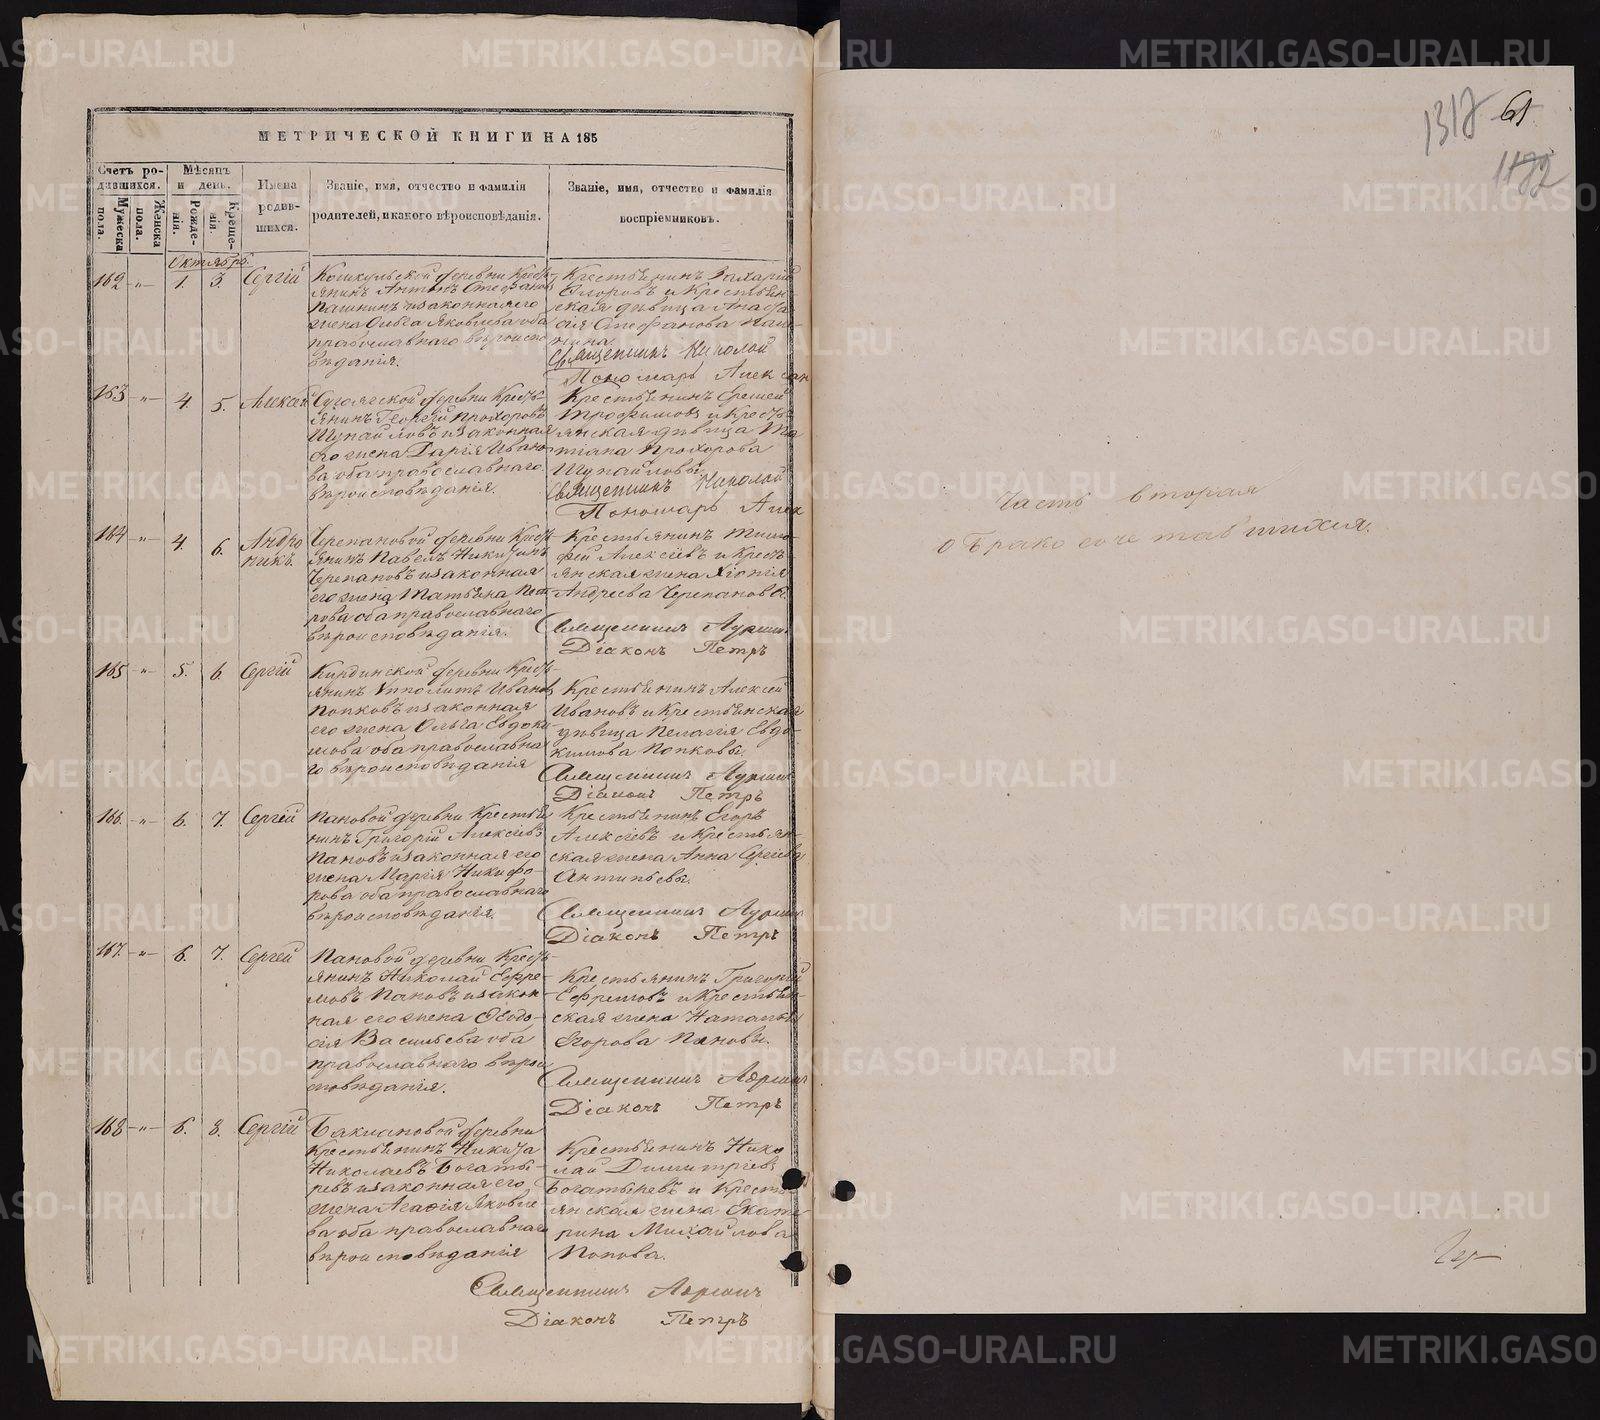 МЕТРИЧЕСКОЙ КНИГИ НА 185
Счетъ ро-
дившихся.
Мѣсяцъ
и день.
Имена
родив-
шихся.
Званіе, имя, отчество и фамилія
родителей, и какого вѣроисповѣданія.
Званіе, имя, отчество и фамилія
воспріемниковъ.
Мужеска
пола.
Женска
пола.
Рожде-
нія.
Креще-
нія.
Октябрь.
162 -"- 1. 3. Сергій
деревни Кресть-
янинъ Антонъ Стефановъ
Пашнинъ изаконная его
жена Ольга Яковлева оба
православнаго вѣроиспо
вѣданія.
Крестьянинъ Захарій
и Крестьян-
ская дѣвица Анаста-
сія Стефанова Паш-
нина.
Священникъ Николай
Пономарь Алексан
163 -"- 4. 5. Алексѣй
деревни Кресть-
янинъ Георгій Прохоровъ
Шупайловъ изаконная
его жена Дарія Ивано-
ва оба православнаго
вѣроисповѣданія.
Крестьянинъ
Трофимовъ и Кресть-
янская дѣвица Та
тіана Прохорова
Шупайловы.
Священникъ Николай
Пономарь Алек
164 -"- 4. 6. Андро
никъ.
Черепановой деревни Кресть-
янинъ Павелъ Никитинъ
Черепановъ изаконная
его жена Татьяна Пет-
рова оба православнаго
вѣроисповѣданія.
Крестьянинъ Тимо-
фей Алексѣевъ и Кресть
янская жена Хіонія
Андреева Черепановы.
Священникъ
Діаконъ Петръ
165 -"- 5. 6. Сергій
Кирдинской деревни Кресть-
янинъ Ипполитъ Ивановъ
Попковъ изаконная
его жена Ольга Евдоки-
мова оба православна
го вѣроисповѣданія
Крестьянинъ Алексѣй
Ивановъ и Крестьянская
дѣвица Пелагія Евдо-
кимова Попковы.
Священникъ
Діаконъ Петръ
166. -"- 6. 7. Сергей
Пановой деревни Крестья
нинъ Григорій Алексѣевъ
Пановъ изаконная его
жена Марія Никифо-
рова оба православнаго
вѣроисповѣданія.
Крестьянинъ Егоръ
Алексѣевъ и Крестьян-
ская жена Анна Сергіева
Антипьевы.
Священникъ
Діаконъ Петръ
167. -"- 6. 7. Сергей
Пановой деревни Кресть-
янинъ Николай Ефре-
мовъ Пановъ изакон-
ная его жена Ѳеодо-
сія Васильева оба
православнаго вѣрои
сповѣданія.
Крестьянинъ Григорій
Ефремовъ и Крестьян-
ская жена Наталья
Егорова Пановы.
Священникъ
Діаконъ Петръ
168 -"- 6. 8. Сергій
Баклановой деревни
Крестьянинъ Никита
Николаевъ Богаты-
ревъ изаконная его
жена Агафія Яковле
ва оба православнаго
вѣроисповѣданія
Крестьянинъ Нико
лай Димитріевъ
Богатыревъ и Кресть-
янская жена Екате-
рина Михайлова
Попова.
Священникъ
Діаконъ Петръ
1317 61
1172
Часть вторая
О Бракосочетавшихся.
METRIKI.GASO-URAL.RU